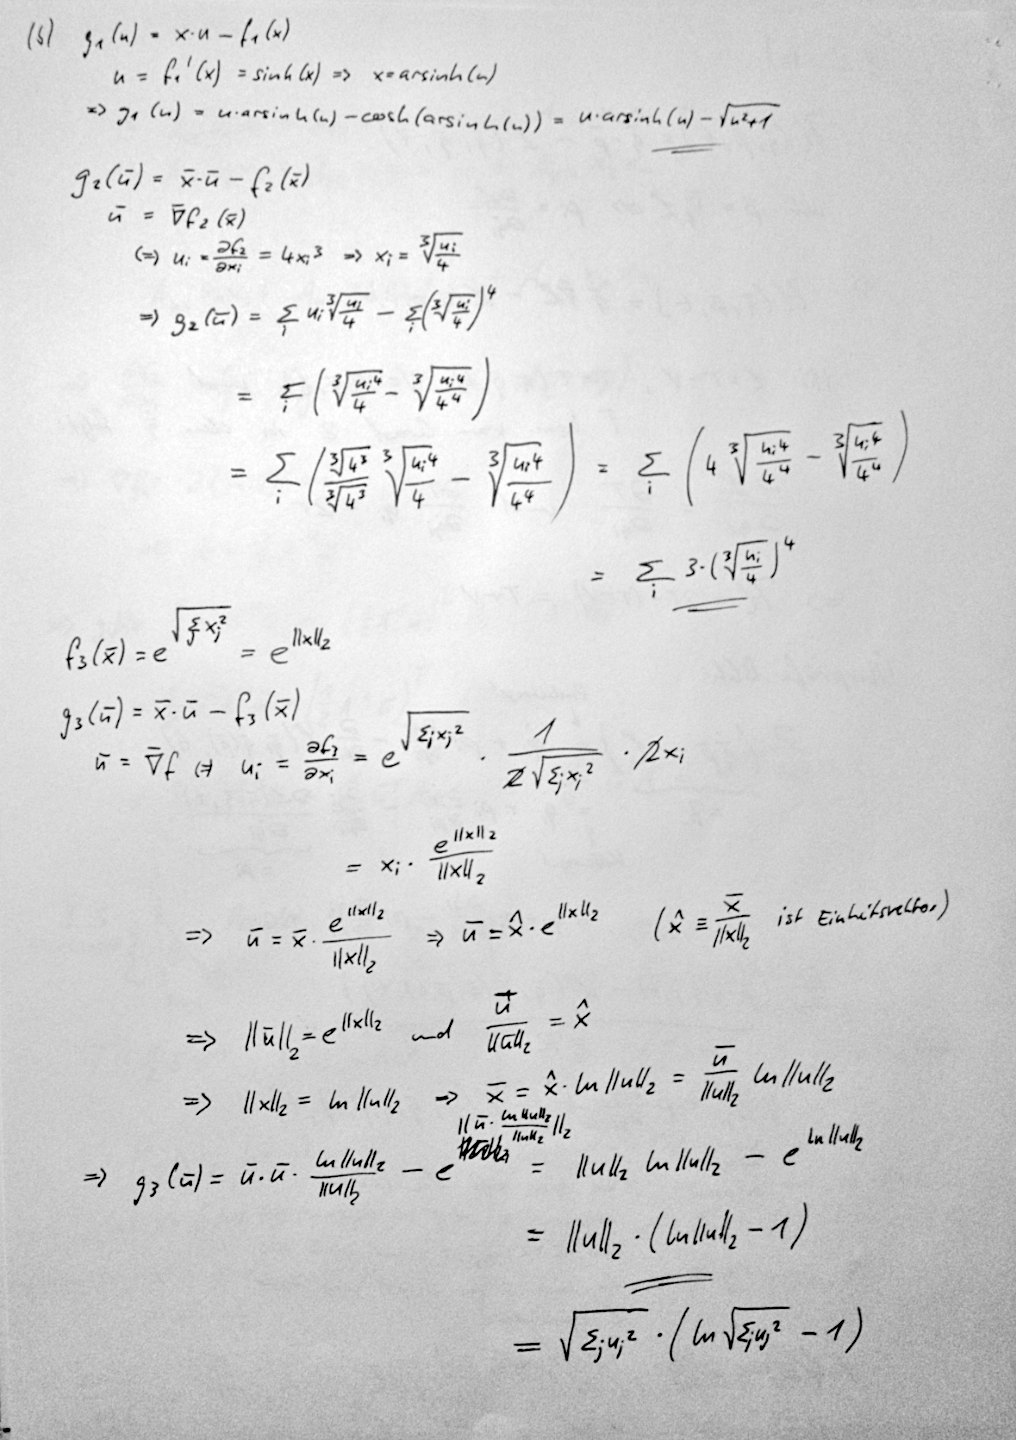 (b) g₁(u) = x·u − f₁(x)
u = f₁'(x) = sinh(x) => x = arsinh(u)
=> g₁(u) = u·arsinh(u) − cosh(arsinh(u)) = u·arsinh(u) − √(u²+1)
g₂(ū) = x̄·ū − f₂(x̄)
ū = ∇̄f₂(x̄)
(=) uᵢ = ∂f₂/∂xᵢ = 4xᵢ³ => xᵢ = ∛(uᵢ/4)
=> g₂(ū) = Σᵢ uᵢ ∛(uᵢ/4) − Σᵢ(∛(uᵢ/4))⁴
= Σᵢ (∛(uᵢ⁴/4) − ∛(uᵢ⁴/4⁴))
= Σᵢ (∛4³/∛4³ ∛(uᵢ⁴/4) − ∛(uᵢ⁴/4⁴)) = Σᵢ (4 ∛(uᵢ⁴/4⁴) − ∛(uᵢ⁴/4⁴))
= Σᵢ 3·(∛(uᵢ/4))⁴
f₃(x̄) = e^√(Σⱼ xⱼ²) = e^||x||₂
g₃(ū) = x̄·ū − f₃(x̄)
ū = ∇̄f (=) uᵢ = ∂f₃/∂xᵢ = e^√(Σⱼxⱼ²) · 1/(2√(Σⱼxⱼ²)) · 2xᵢ
= xᵢ · e^||x||₂/||x||₂
=> ū = x̄ · e^||x||₂/||x||₂ => ū = x̂·e^||x||₂ (x̂ ≡ x̄/||x||₂ ist Einheitsvektor)
=> ||ū||₂ = e^||x||₂ und ū/||ū||₂ = x̂
=> ||x||₂ = ln||u||₂ => x̄ = x̂·ln||u||₂ = ū/||u||₂ ln||u||₂
=> g₃(ū) = ū·ū · ln||u||₂/||u||₂ − e^||ū·ln||u||₂/||u||₂||₂ = ||u||₂ ln||u||₂ − e^ln||u||₂
= ||u||₂ · (ln||u||₂ − 1)
= √(Σⱼuⱼ²) · (ln√(Σⱼuⱼ²) − 1)